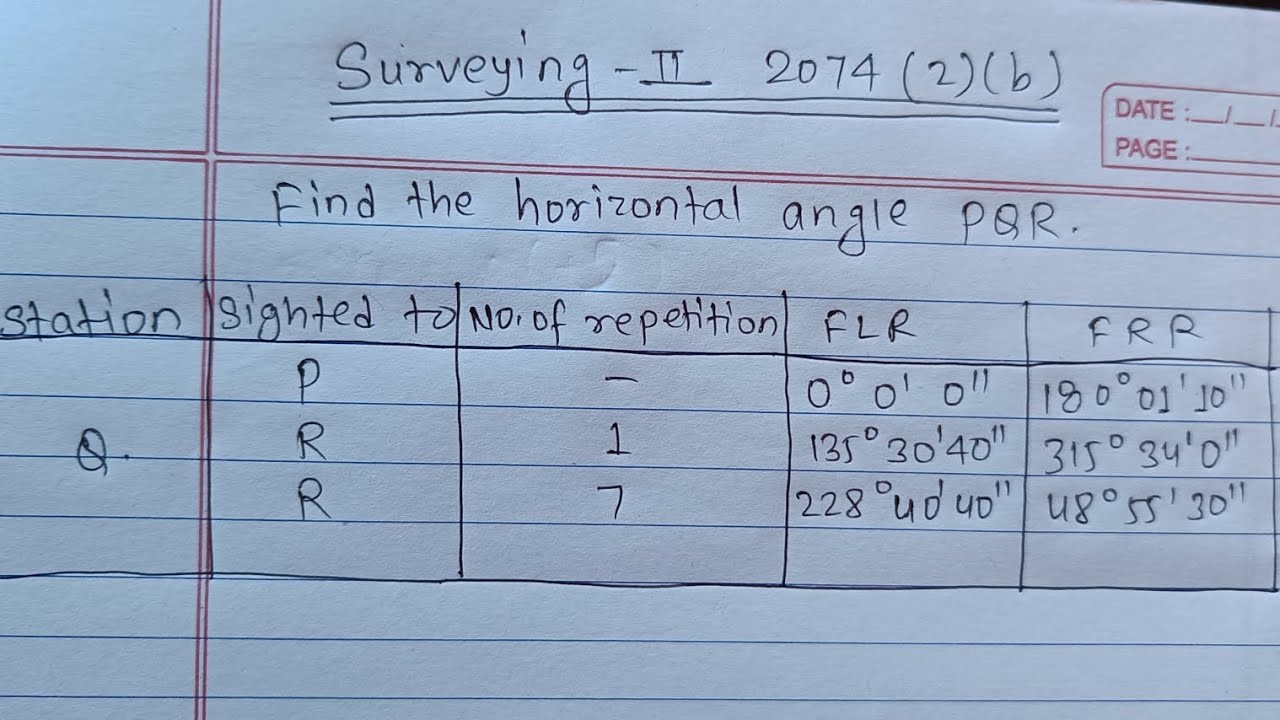 Surveying - II 2074 (2)(b)
DATE :__/__/
PAGE :
Find the horizontal angle PQR.
Station Sighted to No. of repetition FLR FRR
P – 0° 0' 0" 180° 01' 10"
Q. R 1 135° 30' 40" 315° 34' 0"
R 7 228° 40' 40" 48° 55' 30"